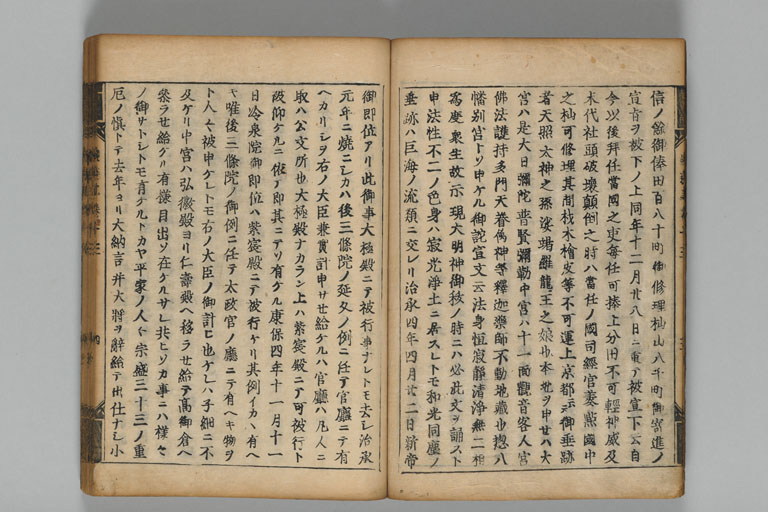 信ノ為御俸田百八十町御修理杣山八千町御寄進ノ
宣旨ヲ被下ノ上同年十二月廿八日ニ重テ被宣下云自
今以後拝任當國之吏毎任可捧上分田不可軽神威及
末代社頭破壊顛倒之時ハ當任ノ國司経官奏黙國中
之杣可修理其間材木檜皮等不可運上京都云御垂跡
者天照太神之孫娑竭羅龍王之娘也本地ヲ申セハ大
宮ハ是大日弥陀普賢弥勒中宮ハ十一面観音客人宮
佛法護持多門天眷属神等釋迦薬師不動地蔵也惣八
幡別宮トソ申ケル御詫宣文云法身恒寂静清浄無二相
為度衆生故示現大明神御殿ノ時ニハ必此文ヲ誦スト
申法性不二ノ色身ハ寂光浄土ニ居スレトモ和光同塵ノ
垂跡ハ巨海ノ流類ニ交レリ治承四年四月廿二日新帝
御即位アリ此御事大極殿ニテ被行事ナレトモ去シ治承
元年ニ焼ニシカハ後三條院ノ延久ノ例ニ任テ官廳ニテ有
ヘカリシヲ右ノ大臣兼實計申サセ給ケルハ官廳ハ凡人ニ
取ハ公文所也大極殿ナカラン上ハ紫宸殿ニテ可被行ト
被仰ケルニ依テ即其ニテソ有ケル康保四年十一月十一
日冷泉院御即位ハ紫宸殿ニテ被行ケリ其例イカヽ有ヘ
キ唯後三條院ノ御例ニ任テ太政官ノ廳ニテ有ヘキ物ヲ
ト人々被申ケレトモ右ノ大臣ノ御計ヒ也ケレハ子細ニ不
及ケリ中宮ハ弘徽殿ヨリ仁壽殿ヘ移ラセ給テ高御倉ヘ
参ラセ給ケル有様目出ソ在ケルサレ共ヒソカ事ニハ様々
ノ御サトシトモ有ケルトカヤ平家ノ人々宗盛三十三ノ重
厄ノ慎トテ去年ヨリ大納言并大将ヲ辞給テ出仕ナシ小